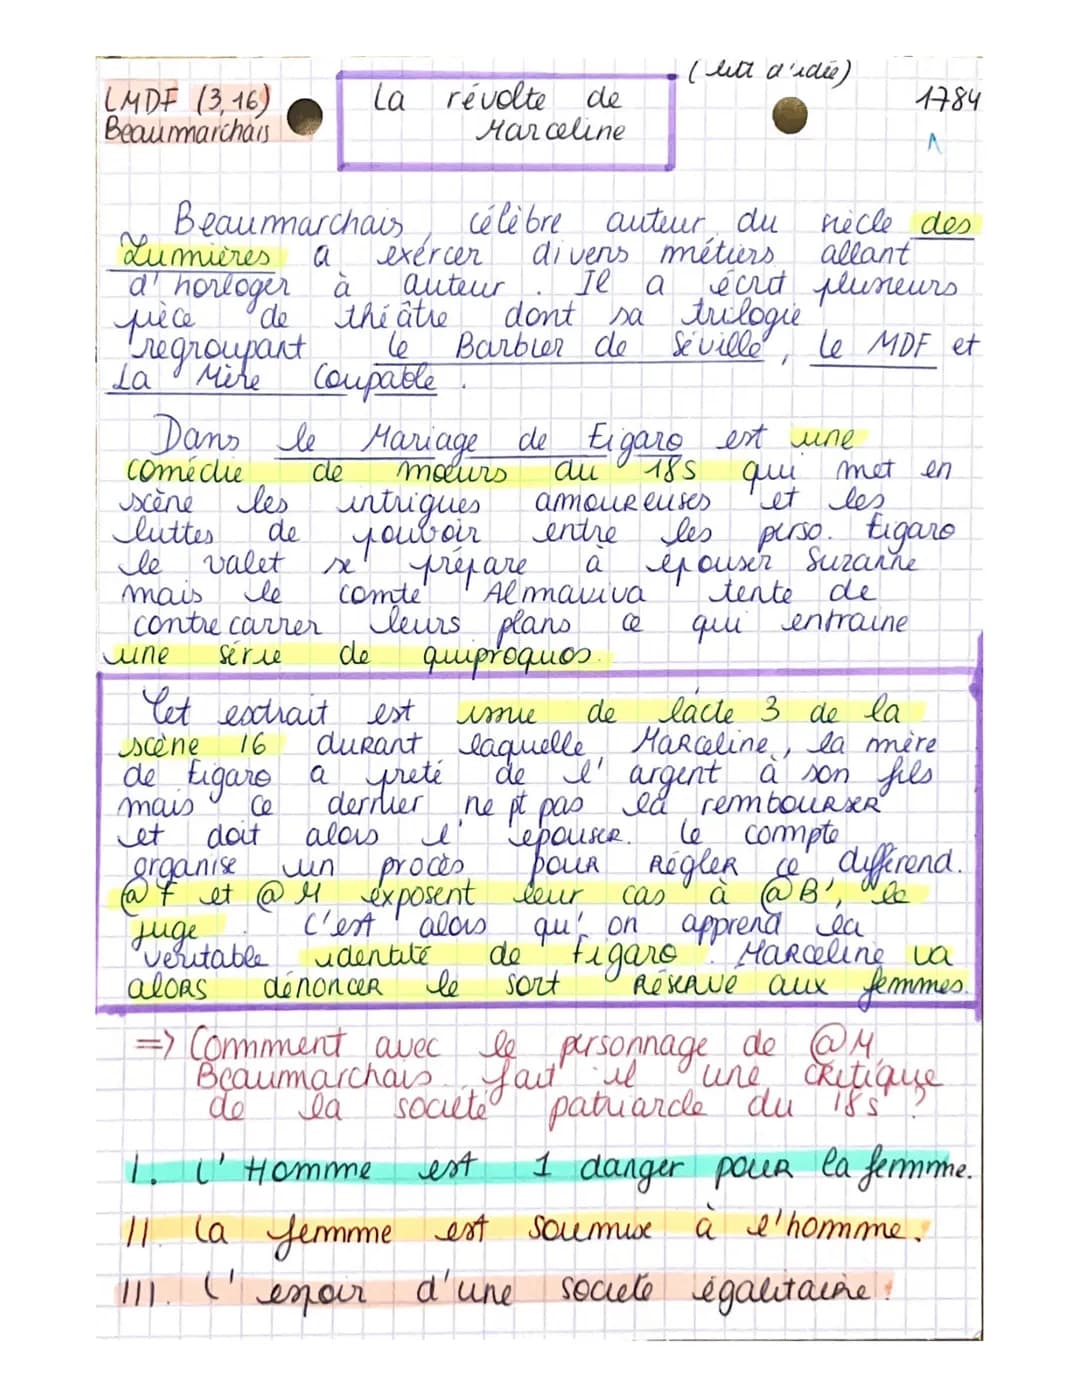 (litt d'idée)
LMDF (3,16)
Beaumarchais
La révolte de
Marceline
1784
1
Beaumarchais, célèbre auteur du siècle des
Lumières a exercer divers métiers allant
d'horloger à auteur. Il a écrit plusieurs
pièce de théâtre dont sa trilogie
regroupant le Barbier de Séville, le MDF et
La Mère Coupable.
Dans le Mariage de Figaro est une
comédie de mœurs du 18s qui met en
scène les intrigues amoureuses et les
luttes de pouvoir entre les perso. Figaro
le valet se prépare à épouser Suzanne
mais le comte Almaviva tente de
contrecarrer leurs plans ce qui entraine
une série de quiproquos.
Cet extrait est issue de l'acte 3 de la
scène 16 durant laquelle Marceline, la mère
de Figaro a preté de l'argent à son fils
mais ce dernier ne pt pas la rembourser
et doit alors l'épouser. Le compte
organise un procès pour régler ce différend.
@F et @M exposent leur cas à @B', le
juge. C'est alors qu'on apprend la
veritable identité de Figaro. Marceline va
alors dénoncer le sort réservé aux femmes.
=> Commment avec le personnage de @M,
Beaumarchais fait il une critique
de la société patriarcle du 18s ?
I. L'Homme est 1 danger pour la femme.
II. La femme est soumise à l'homme.
III. L'espoir d'une société égalitaire.